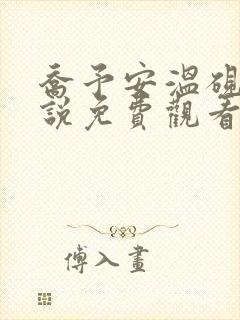 喬予安溫硯
說免費觀看
傅入畫